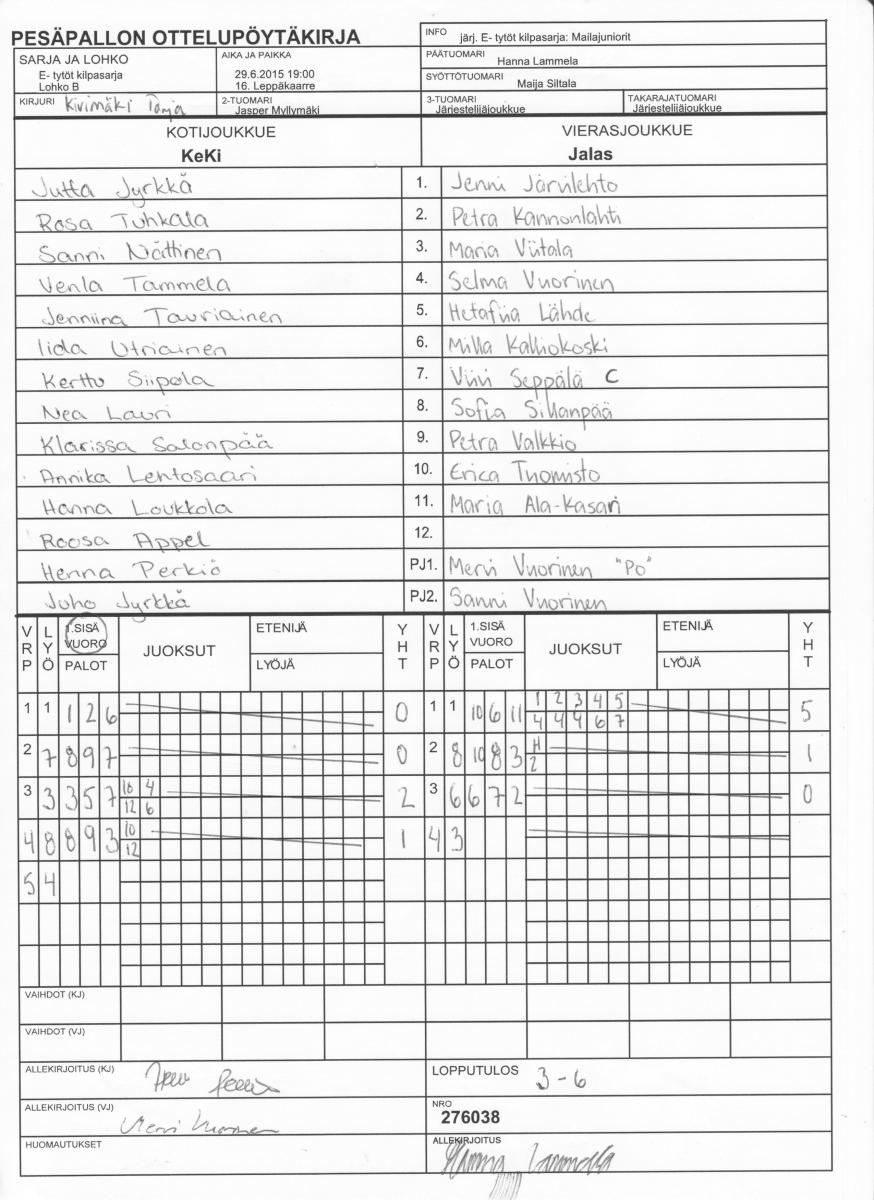 PESÄPALLON OTTELUPÖYTÄKIRJA
INFO järj. E- tytöt kilpasarja: Mailajuniorit
SARJA JA LOHKO
E- tytöt kilpasarja
Lohko B
AIKA JA PAIKKA
29.6.2015 19:00
16. Leppäkaarre
PÄÄTUOMARI Hanna Lammela
SYÖTTÖTUOMARI Maija Siltala
KIRJURI Kivimäki Tanja
2-TUOMARI Jasper Myllymäki
3-TUOMARI Järjestelijäjoukkue
TAKARAJATUOMARI Järjestelijäjoukkue
KOTIJOUKKUE VIERASJOUKKUE
KeKi Jalas
Jutta Jyrkkä 1. Jenni Järvilehto
Rosa Tuhkala 2. Petra Kannonlahti
Sanni Nättinen 3. Maria Viitala
Venla Tammela 4. Selma Vuorinen
Jenniina Tauriainen 5. Hetafiia Lähde
Iida Utriainen 6. Milla Kalliokoski
Kerttu Siipola 7. Viivi Seppälä C
Nea Lauri 8. Sofia Sillanpää
Klarissa Salonpää 9. Petra Valkkio
Annika Lehtosaari 10. Erica Tuomisto
Hanna Loukkola 11. Maria Ala-Kasari
Roosa Appel 12.
Henna Perkiö PJ1. Mervi Vuorinen "Po"
Juho Jyrkkä PJ2. Sanni Vuorinen
VRP LYÖ 1.SISÄ VUORO PALOT JUOKSUT ETENIJÄ LYÖJÄ YHT VRP LYÖ 1.SISÄ VUORO PALOT JUOKSUT ETENIJÄ LYÖJÄ YHT
1 1 1 2 6 0 1 1 10 6 11 1 2 3 4 5 5
4 4 4 6 7
2 7 8 9 7 0 2 8 10 8 3 H 1
2
3 3 3 5 7 10 4 2 3 6 6 7 2 0
12 6
4 8 8 9 3 10 1 4 3
12
5 4
VAIHDOT (KJ)
VAIHDOT (VJ)
ALLEKIRJOITUS (KJ)
LOPPUTULOS 3-6
ALLEKIRJOITUS (VJ) Mervi Vuorinen
NRO
276038
HUOMAUTUKSET
ALLEKIRJOITUS Hanna Lammela